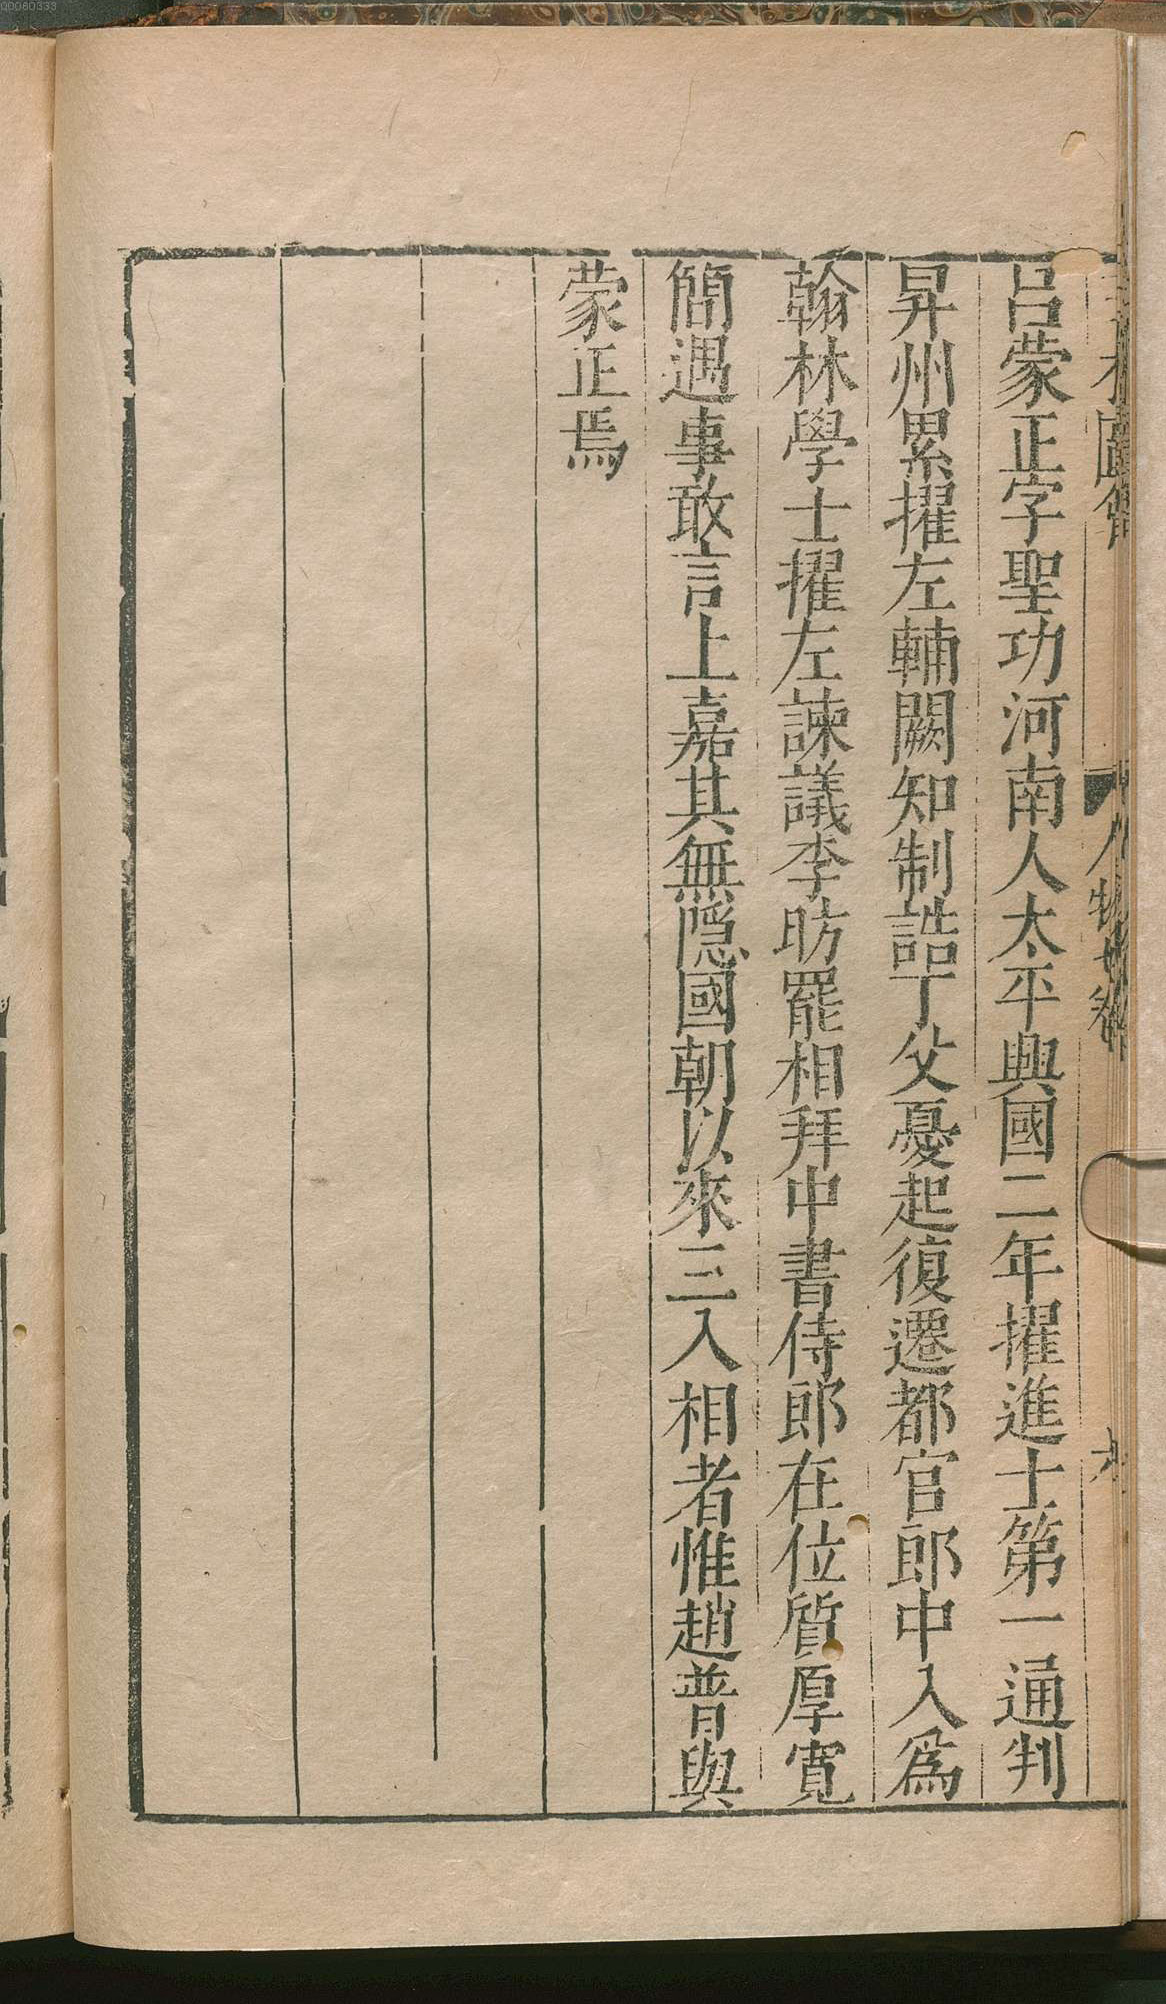 呂蒙正字聖功河南人太平興國二年擢進士第一通判
昇州累擢左輔闕知制誥丁父憂起復遷都官郎中入爲
翰林學士擢左諫議李昉罷相拜中書侍郎在位質厚寬
簡遇事敢言上嘉其無隱國朝以來三入相者惟趙普與
蒙正焉
00060333